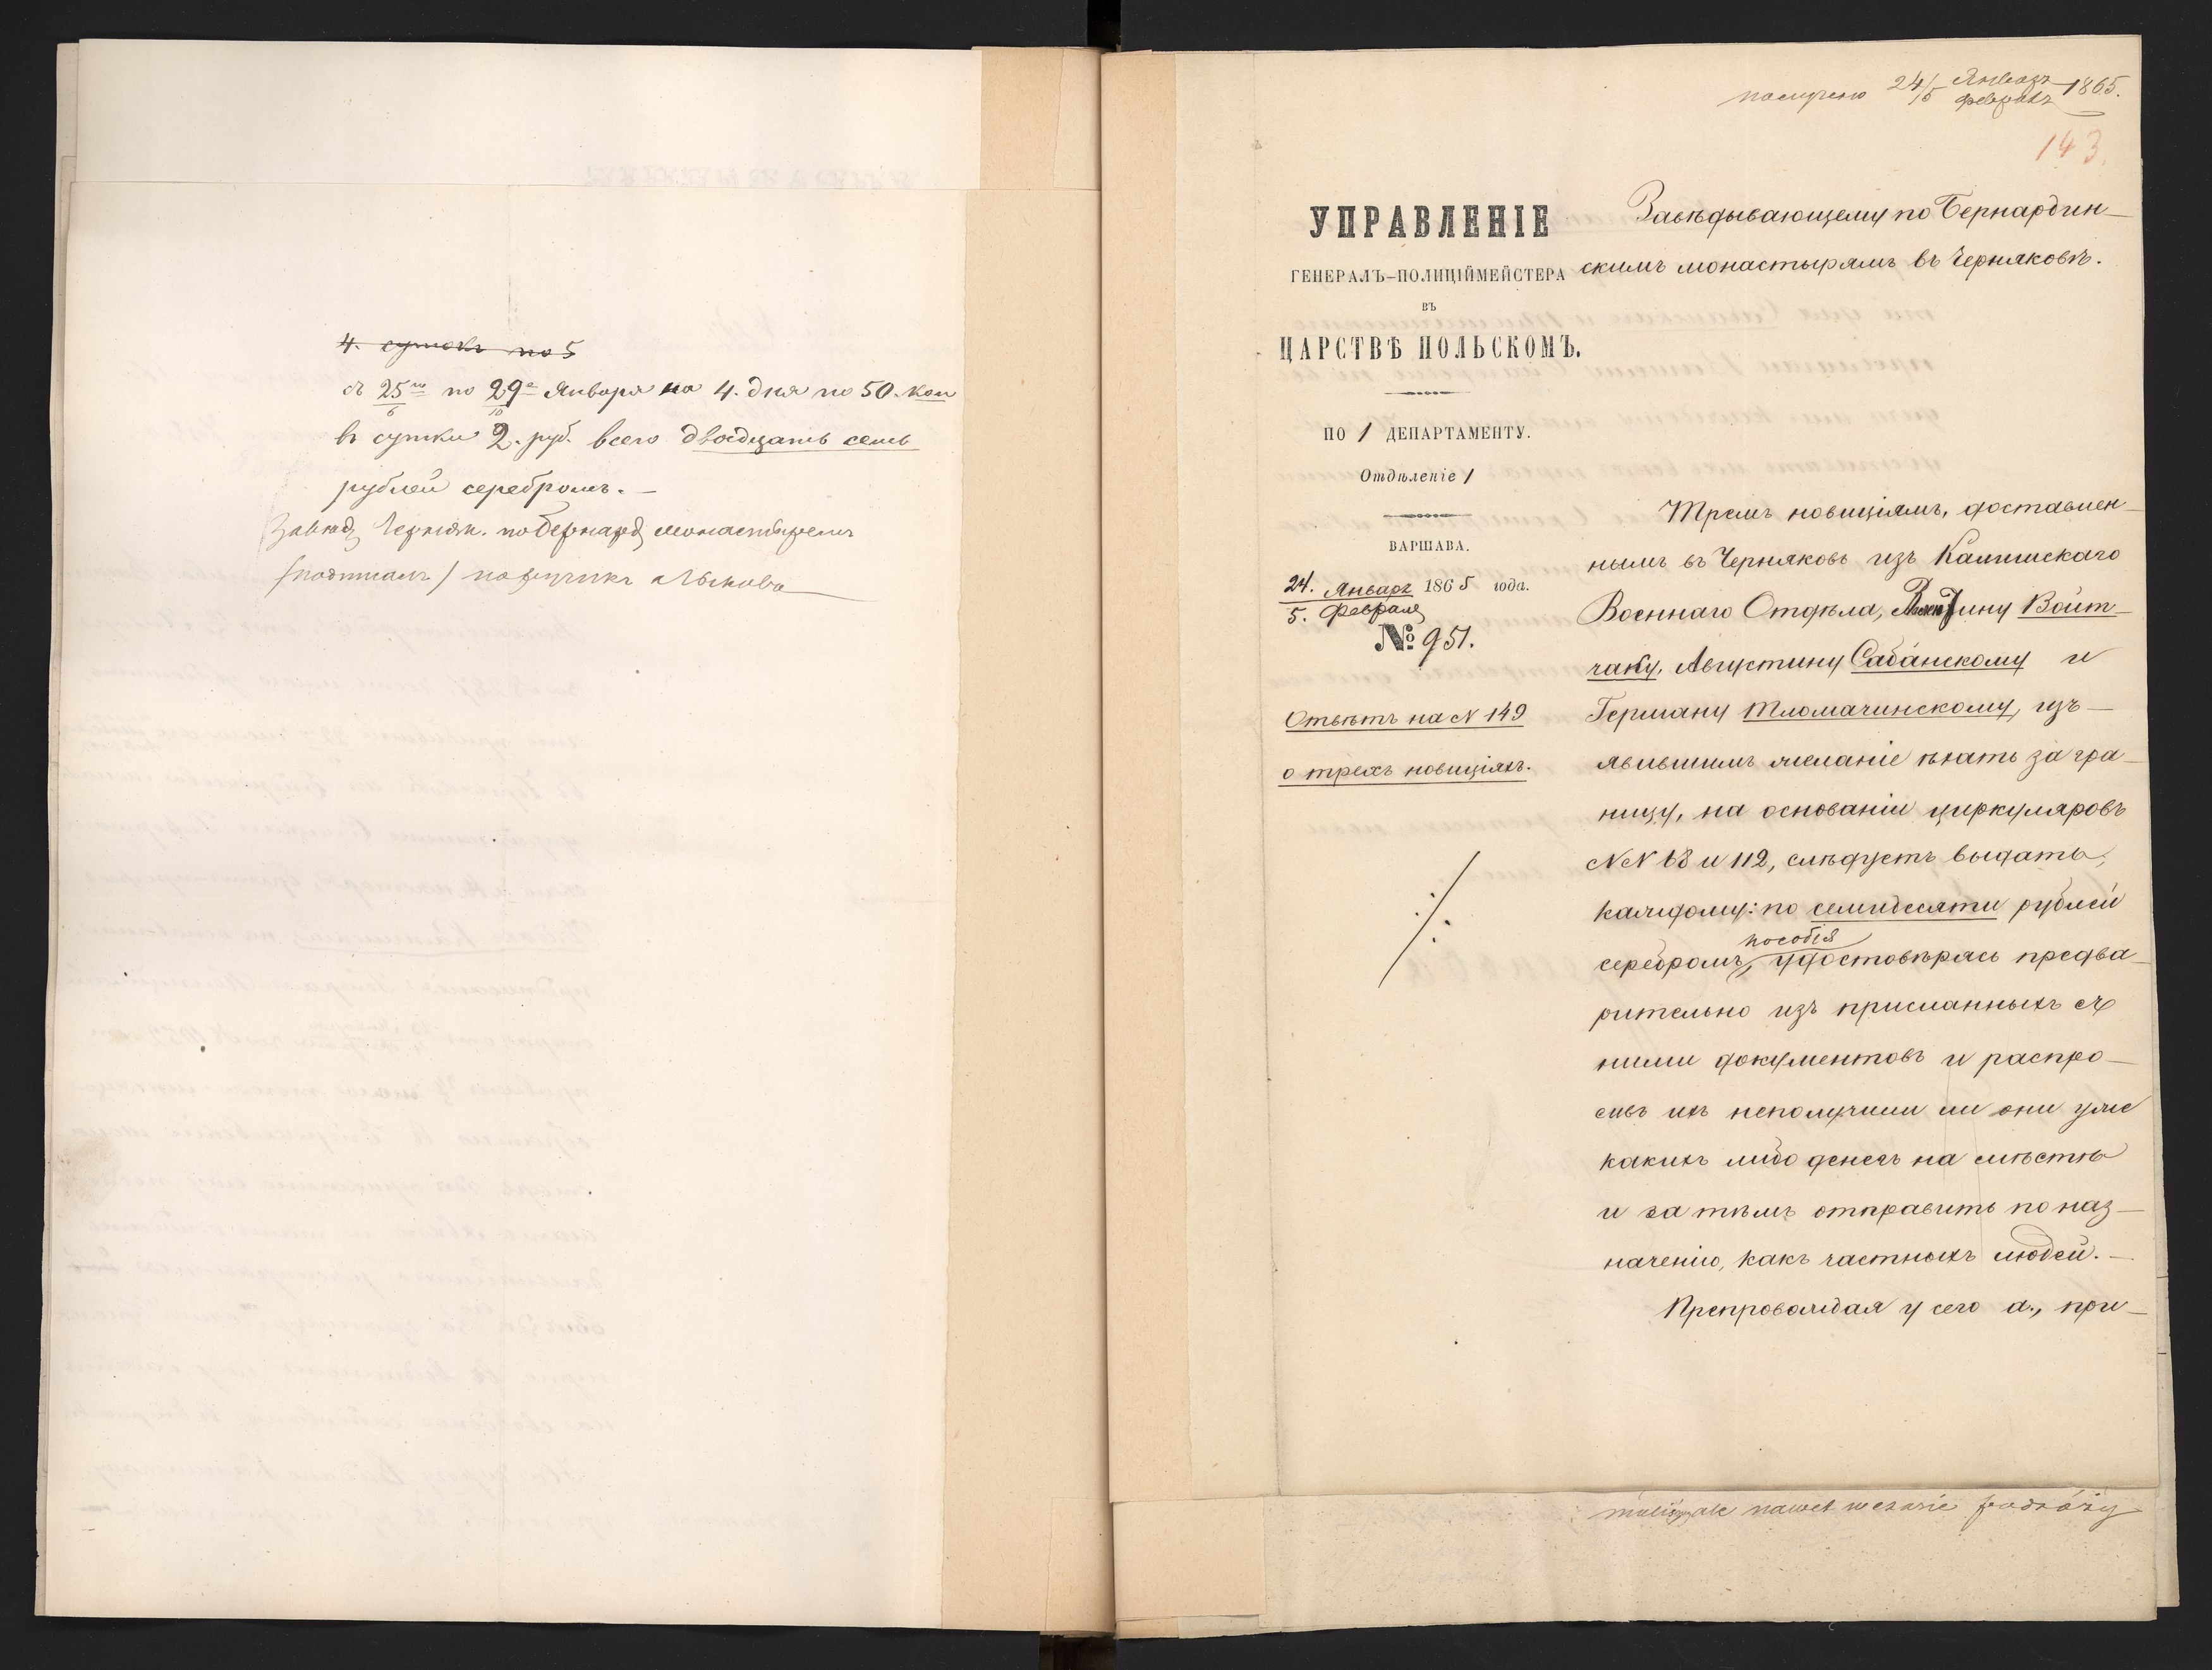 4. сутокъ по 5
съ 25го по 29е Января на 4. дня по 50. коп
6 10
въ сутки 2. руб. всего двадцать семь
рублей серебромъ. —
Завѣд. Черняк. по Бернард. монастыремъ
/подписалъ/ поручикъ
получено 24/5 Январь Февраль 1865.
143.
УПРАВЛЕНІЕ
ГЕНЕРАЛЪ-ПОЛИЦІЙМЕЙСТЕРА
ВЪ
ЦАРСТВѢ ПОЛЬСКОМЪ.
ПО 1 ДЕПАРТАМЕНТУ.
Отдѣленіе 1
ВАРШАВА.
24. Января 1865 года.
5. Февраля
№ 951.
Отвѣтъ на N 149
о трехъ новиціяхъ.
Завѣдывающему по Бернардин—
скимъ монастырямъ въ Черняковѣ.
Тремъ новиціямъ, доставлен—
нымъ въ Черняковъ изъ Калишскаго
Военнаго Отдѣла, Войт—
чаку, Августину Сабанскому и
Герману Тломачинскому, изъ—
явившимъ желаніе ѣхать за гра—
ницу, на основаніи циркуляровъ
NN 68 и 112, слѣдуетъ выдать,
каждому: по семидесяти рублей
пособія
серебромъ, удостовѣрясь предва—
рительно изъ присланныхъ съ
ними документовъ и распро—
сивъ ихъ неполучили ли они уже
какихъ либо денегъ на мѣстѣ
и за тѣмъ отправить по наз—
наченію, какъ частныхъ людей. —
Препровождая у сего а., при—
nawet w czasie podróży